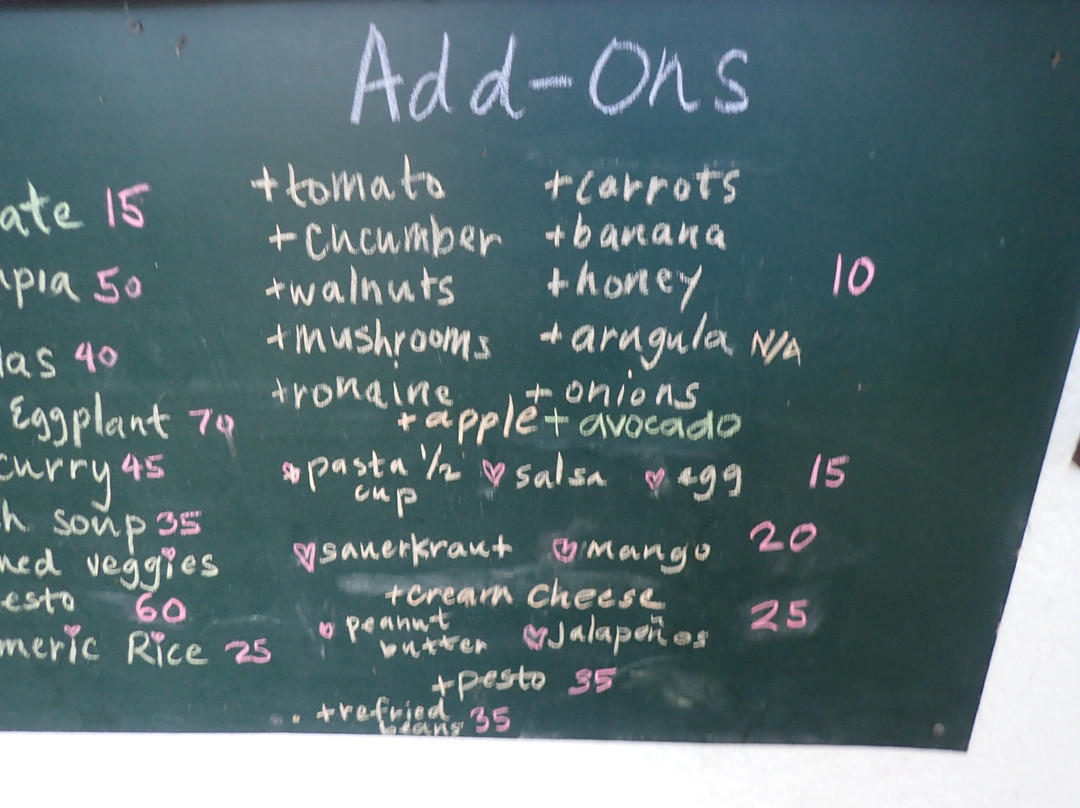 Add-Ons
ate 15
pia 50
las 40
Eggplant 70
curry 45
h soup 35
ned veggies
esto 60
meric Rice 25
+tomato +carrots
+cucumber +banana
+walnuts +honey 10
+mushrooms +arugula N/A
+romaine + onions
+apple + avocado
pasta 1/2 cup ♥ salsa ♥ egg 15
♥ sauerkraut ♥ mango 20
+cream cheese
♥ peanut butter ♥ Jalapeños 25
+pesto 35
+refried beans 35